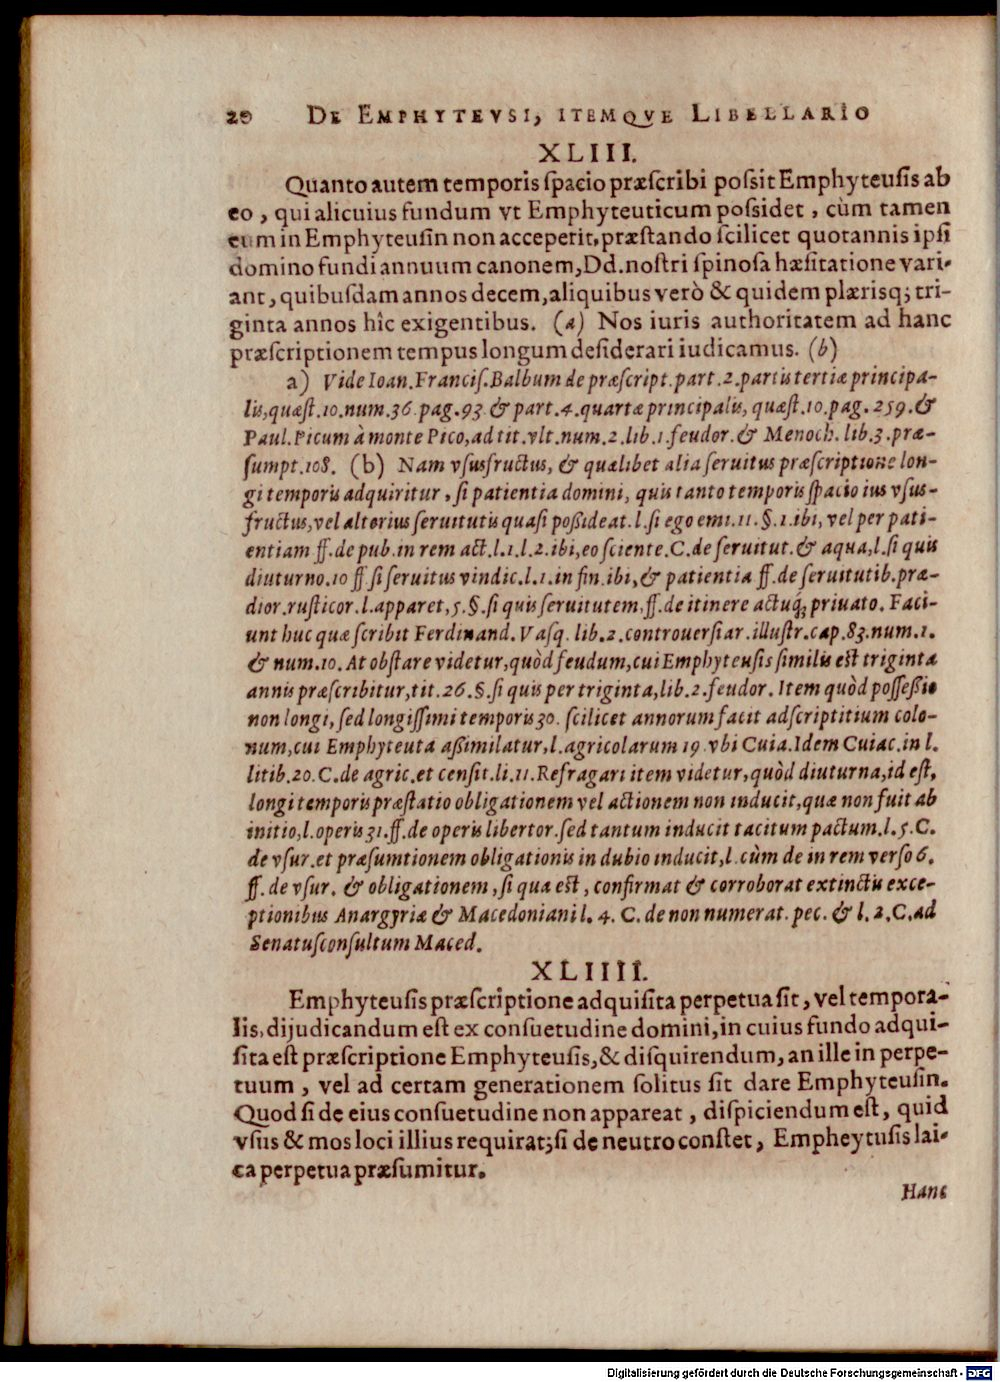 20 DE EMPHYTEVSI, ITEMQVE LIBELLARIO
XLIII.
Quanto autem temporis spacio præscribi possit Emphyteusis ab
eo, qui alicuius fundum vt Emphyteuticum possidet, cùm tamen
eum in Emphyteusin non acceperit, præstando scilicet quotannis ipsi
domino fundi annuum canonem, Dd. nostri spinosa hæsitatione vari-
ant, quibusdam annos decem, aliquibus verò & quidem plærisq; tri-
ginta annos hîc exigentibus. (a) Nos iuris authoritatem ad hanc
præscriptionem tempus longum desiderari iudicamus. (b)
a) Vide Ioan. Francis. Balbum de præscript. part. 2. partis tertiæ principa-
lis, quæst. 10. num. 36. pag. 93. & part. 4. quartæ principalis, quæst. 10. pag. 259. &
Paul. Picum à monte Pico, ad tit. vlt. num. 2. lib. 1. feudor. & Menoch. lib. 3. præ-
sumpt. 108. (b) Nam vsusfructus, & quælibet alia seruitus præscriptione lon-
gi temporis adquiritur, si patientia domini, quis tanto temporis spacio ius vsus-
fructus, vel alterius seruitutis quasi possideat. l. si ego emi. 11. §. 1. ibi, vel per pati-
entiam ff. de pub. in rem act. l. 1. l. 2. ibi, eo sciente. C. de seruitut. & aqua, l. si quis
diuturno. 10 ff. si seruitus vindic. l. 1. in fin. ibi, & patientia ff. de seruitutib. præ-
dior. rusticor. l. apparet, 5. §. si quis seruitutem, ff. de itinere actuq́; priuato. Faci-
unt huc quæ scribit Ferdinand. Vasq. lib. 2. controuersiar. illustr. cap. 83. num. 1.
& num. 10. At obstare videtur, quòd feudum, cui Emphyteusis similis est triginta
annis præscribitur, tit. 26. §. si quis per triginta, lib. 2. feudor. Item quòd possessio
non longi, sed longissimi temporis 30. scilicet annorum facit adscriptitium colo-
num, cui Emphyteuta assimilatur, l. agricolarum 19. vbi Cuia. Idem Cuiac. in l.
litib. 20. C. de agric. et censit. li. 11. Refragari item videtur, quòd diuturna, id est,
longi temporis præstatio obligationem vel actionem non inducit, quæ non fuit ab
initio, l. operis 31. ff. de operis libertor. sed tantum inducit tacitum pactum. l. 5. C.
de vsur. et præsumtionem obligationis in dubio inducit, l. cùm de in rem verso 6.
ff. de vsur. & obligationem, si qua est, confirmat & corroborat extinctis exce-
ptionibus Anargyriæ & Macedoniani l. 4. C. de non numerat. pec. & l. 2. C. ad
Senatusconsultum Maced.
XLIIII.
Emphyteusis præscriptione adquisita perpetua sit, vel tempora-
lis, dijudicandum est ex consuetudine domini, in cuius fundo adqui-
sita est præscriptione Emphyteusis, & disquirendum, an ille in perpe-
tuum, vel ad certam generationem solitus sit dare Emphyteusin.
Quod si de eius consuetudine non appareat, dispiciendum est, quid
vsus & mos loci illius requirat; si de neutro constet, Empheytusis lai-
ca perpetua præsumitur.
Hanc
Digitalisierung gefördert durch die Deutsche Forschungsgemeinschaft - DFG